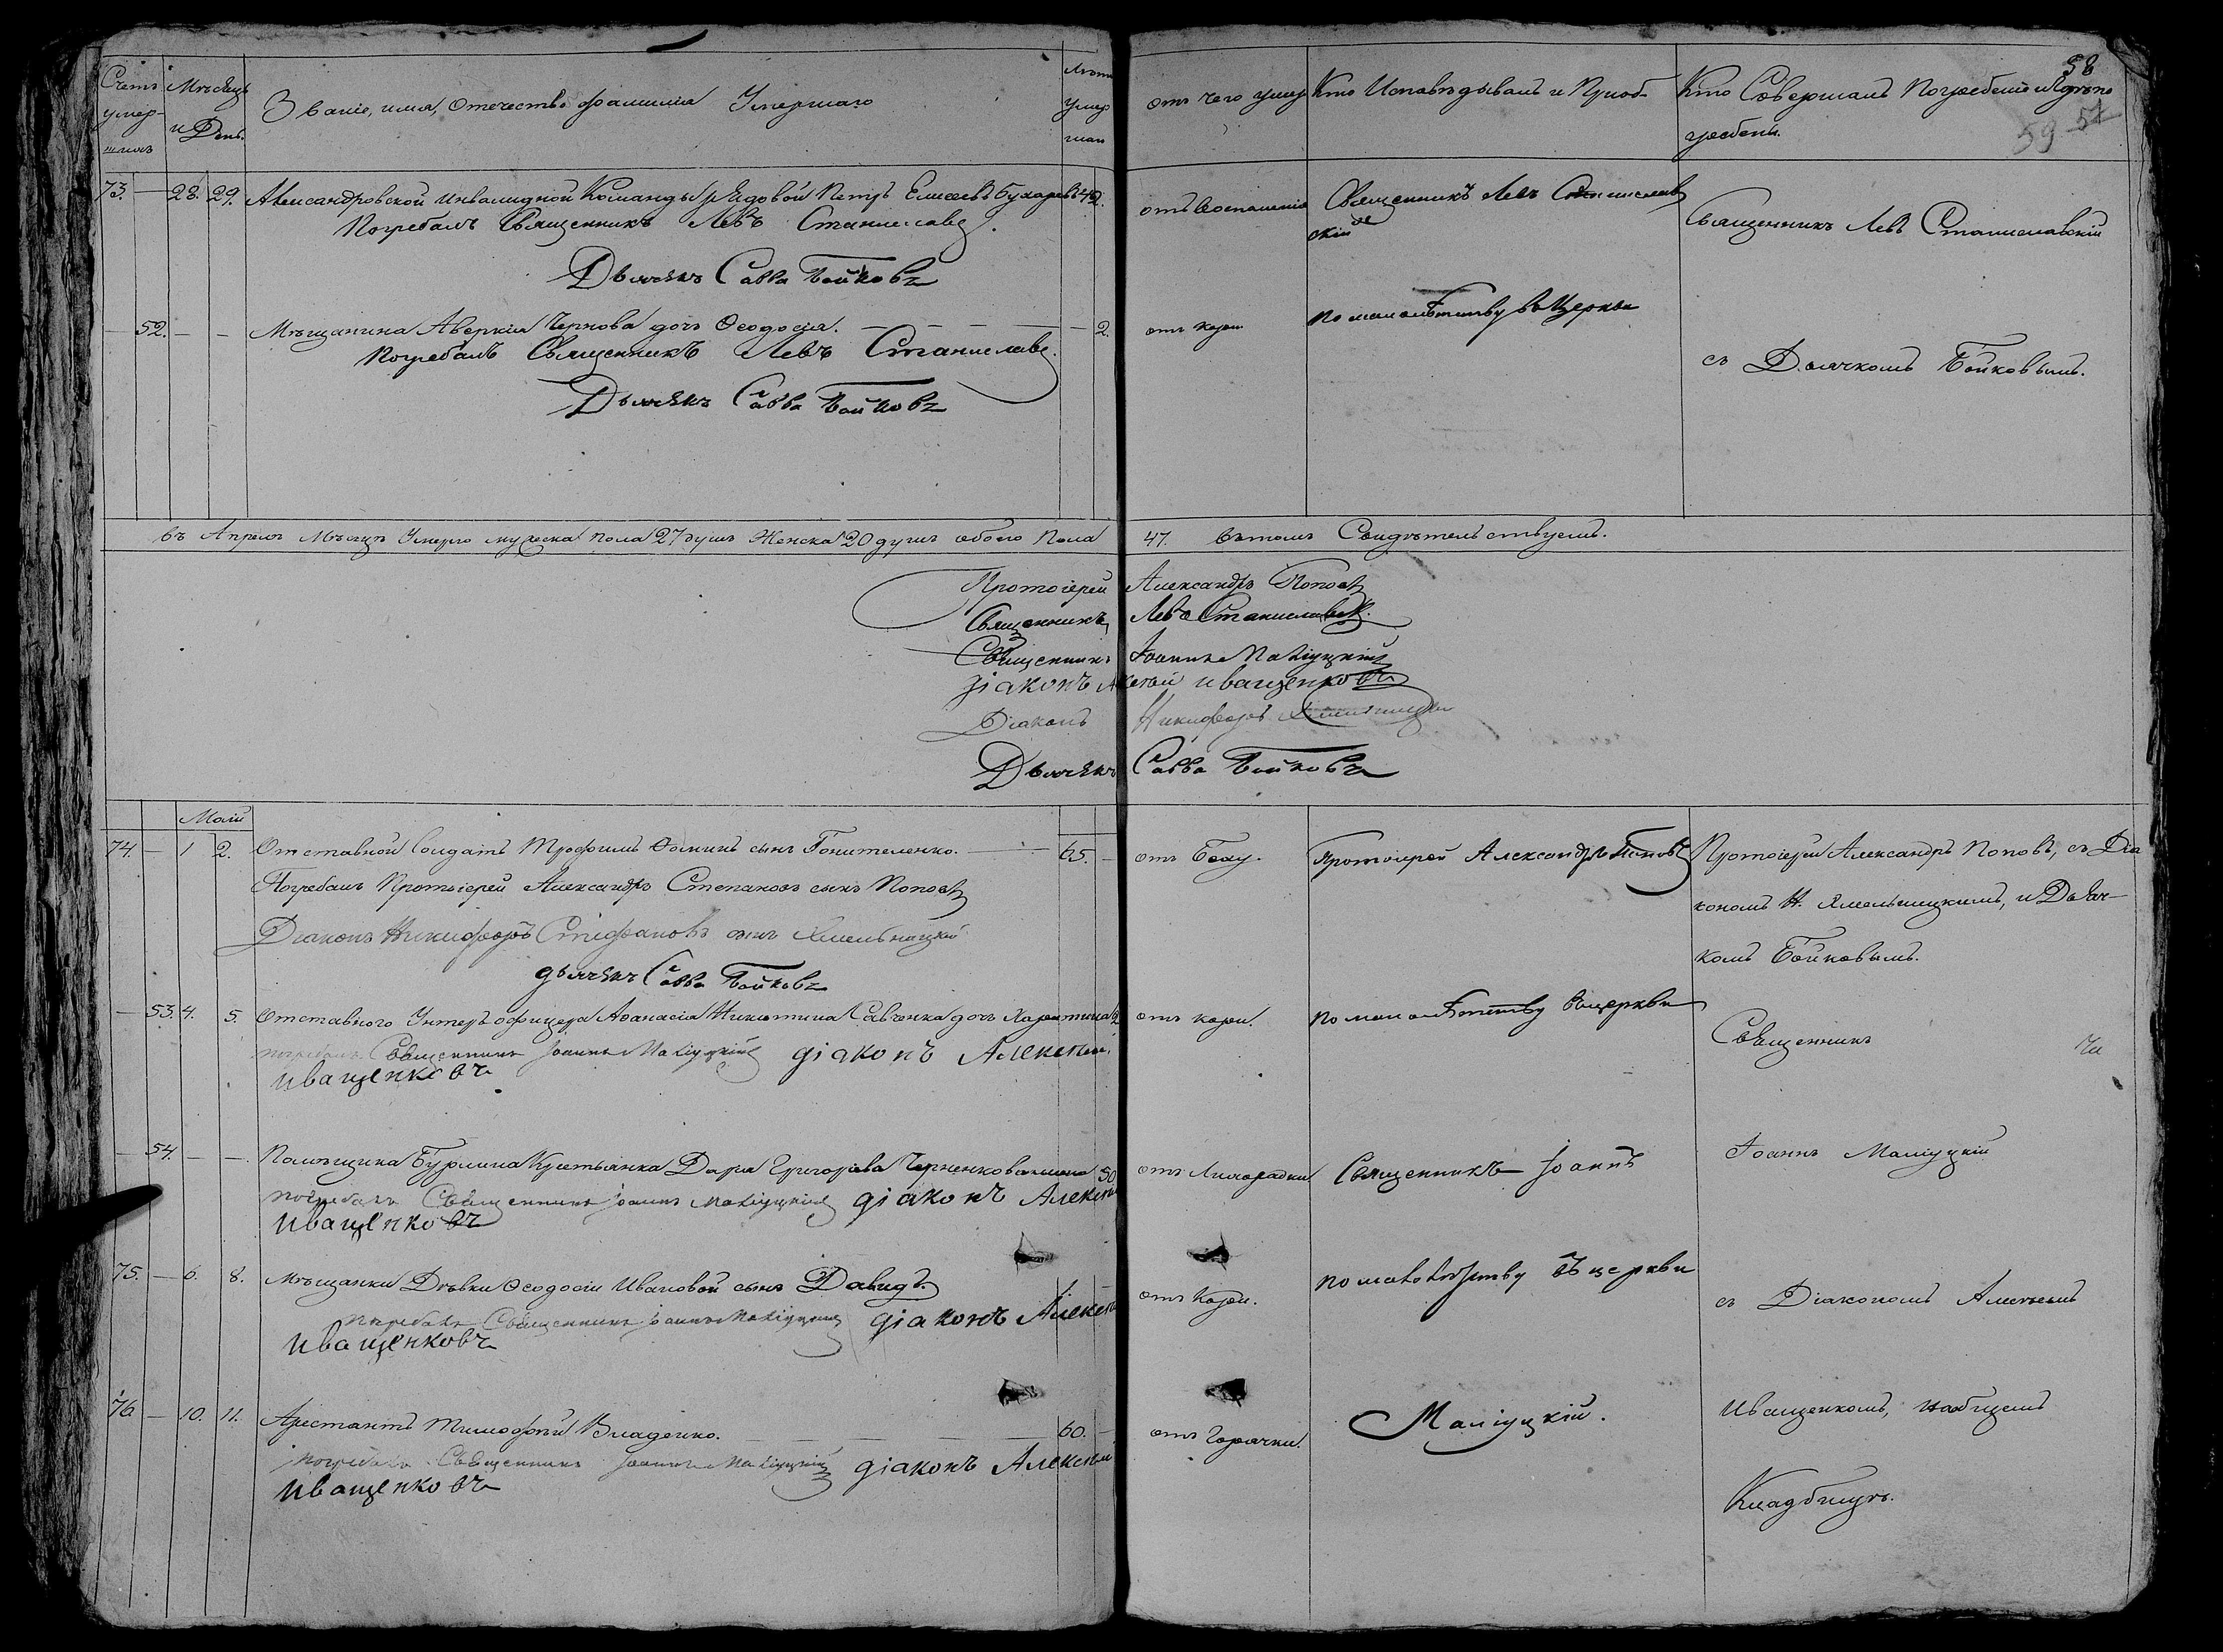 Счетъ умершихъ
Мѣсяцъ и День.
Званіе, имя, Отечество фамилія Умершаго
Лѣта Умершаго
отъ чего умер
Кто Исповѣдывалъ и Пріоб-
Кто Совершалъ Погребеніе и гдѣ по
гребены.
58
59 57
73. — 28. 29. Александровской инвалидной Команды рядовой Петръ Елисеевъ Бухаревъ 42.
отъ Воспаленія
Священникъ Левъ Станиславскій
Священникъ Левъ Станиславскій
Погребалъ Священникъ Левъ Станиславс.
Дьячекъ Савва Бойковъ
— 52. — — Мѣщанина Аверкія Чернова дочь Ѳеодосія. — 2.
отъ кори
по малолѣтству въ Церкви
съ Дьячкомъ Бойковымъ.
Погребалъ Священникъ Левъ Станиславс.
Дьячекъ Савва Бойковъ
въ Апрелѣ Мѣсяцѣ Умерло мужеска пола 27 душъ Женска 20 душъ обоего Пола 47. вътомъ Свидѣтельствуемъ.
Протоіерей Александръ Поповъ
Священникъ Левъ Станиславск.
Священникъ Іоаннъ Маліуцкій
діаконъ Алексѣй иващенковъ
Діаконъ Никифоръ Хмельницкій
Дьячекъ Савва Бойковъ
Маій
74. — 1 2. Отставной Солдатъ Трофимъ Ѳоминъ сынъ Гонителенко. — 65. —
отъ
Протоіерей Александръ Поповъ
Протоіерей Александръ Поповъ, съ Діа
Погребалъ Протоіерей Александръ Степановъ сынъ Поповъ
кономъ Н. Хмельницкимъ, и Дьяч-
Діаконъ Никифоръ Стефановъ сынъ Хмельницкій
комъ Бойковымъ.
дьячекъ Савва Бойковъ
— 53. 4. 5. Отставного Унтеръ офицера Аѳанасія Никитина Савченка дочь Харитина 2
отъ кори.
по малолѣтству въцеркви
Священникъ
погребалъ Священникъ Іоаннъ Маліуцкій діаконъ Алексѣй
иващенковъ
— 54. — — Помѣщика Бурлина Крестьянка Дарья Григорьева Черненкова 50
отъ Лихорадки
Священникъ Іоаннъ
Іоаннъ Маліуцкій
погребалъ Священникъ Іоаннъ Маліуцкій діаконъ Алексѣй
иващенковъ
75. — 6. 8. Мѣщанки Дѣвки Ѳеодосіи Ивановой сынъ Давидъ.
отъ Кори.
по малолѣтству въ церкви
съ Діакономъ Алексѣемъ
погребалъ Священникъ Іоаннъ Маліуцкій діаконъ Алексѣ
иващенковъ
76 — 10. 11. Арестантъ Тимофѣй Владенко. — 60. —
отъ Горячки.
Маліуцкій.
Иващенкомъ, наобщемъ
погребалъ Священникъ Іоаннъ Маліуцкій діаконъ Алексѣй
иващенковъ
Кладбищѣ.